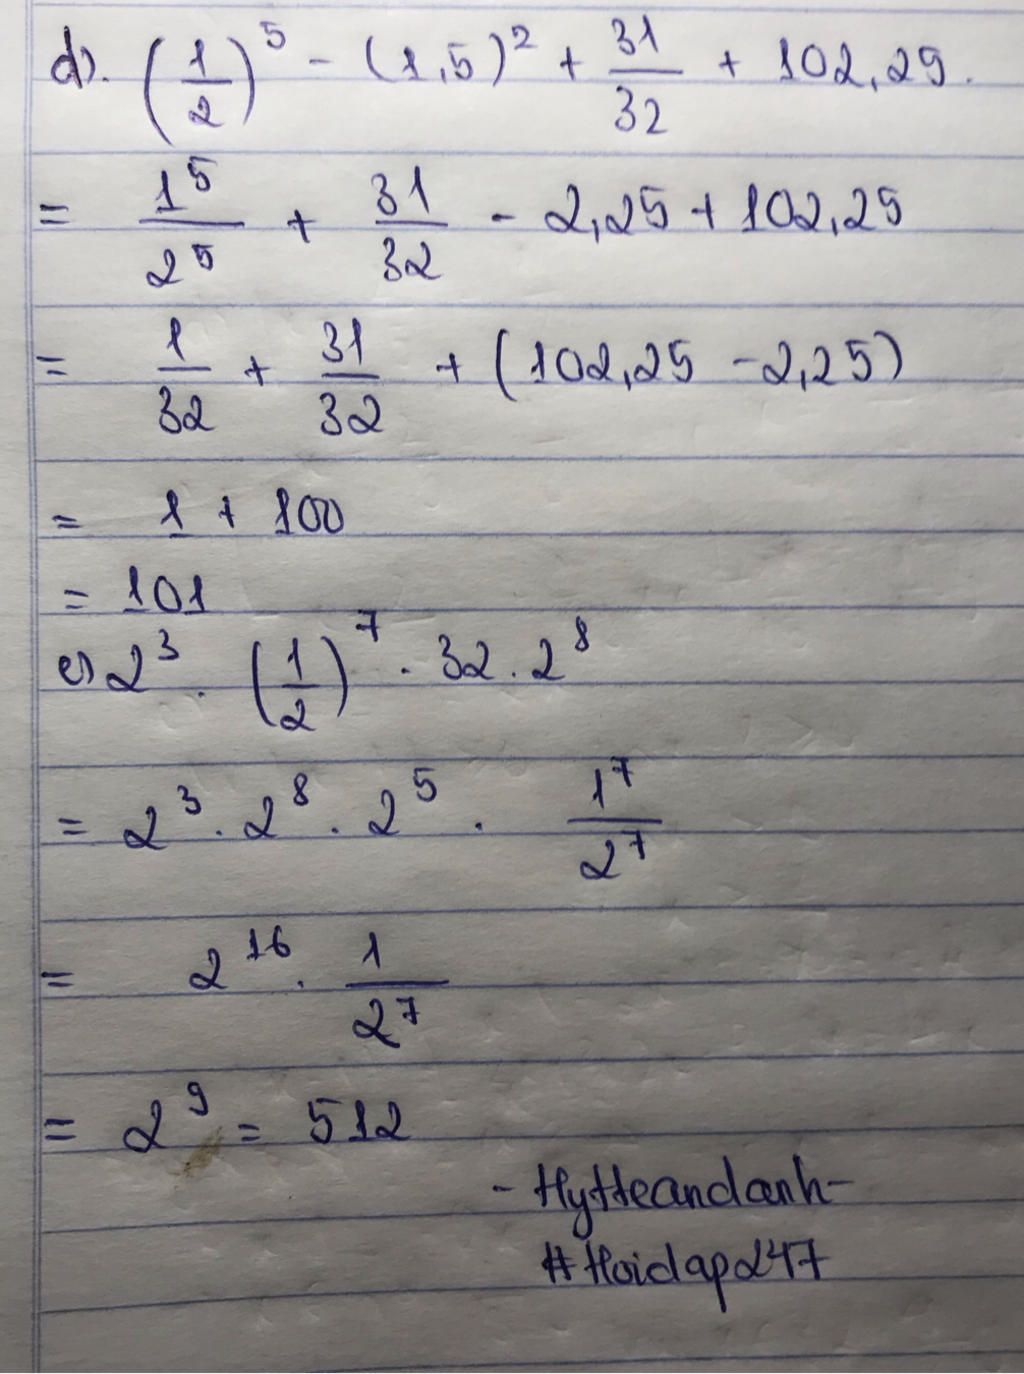 d). (1/2)^5 - (1,5)^2 + 31/32 + 102,25.
= 1^5/2^5 + 31/32 - 2,25 + 102,25
= 1/32 + 31/32 + (102,25 - 2,25)
= 1 + 100
= 101
e) 2^3 . (1/2)^7 . 32 . 2^8
= 2^3 . 2^8 . 2^5 . 1^7/2^7
= 2^16 . 1/2^7
= 2^9 = 512
- Hytteandanh-
#Hoidap247